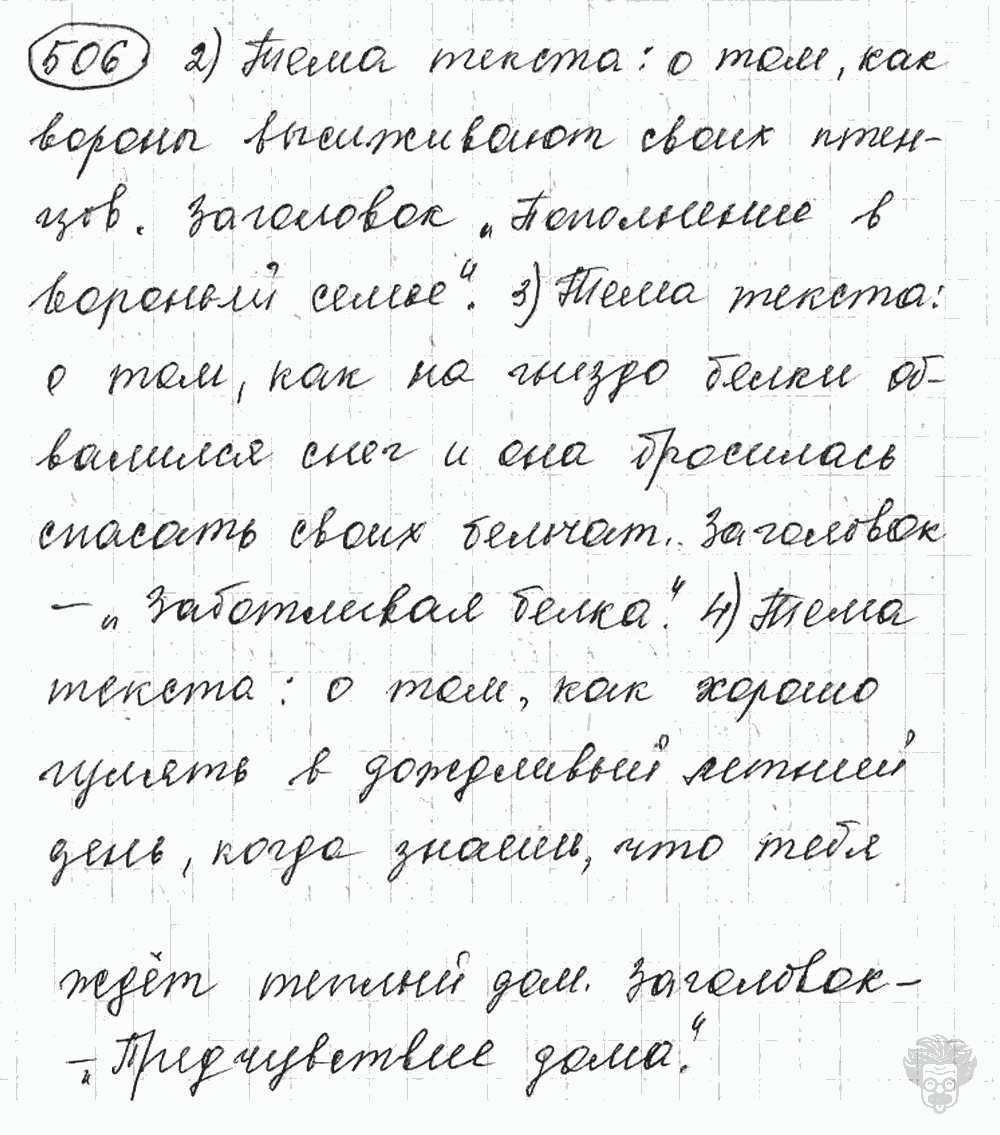 506. 2) Тема текста: о том, как
вороны высиживают своих птен-
цов. Заголовок „Пополнение в
вороньей семье“. 3) Тема текста:
о том, как на гнездо белки об-
валился снег и она бросилась
спасать своих бельчат. Заголовок
– „Заботливая белка“. 4) Тема
текста: о том, как хорошо
гулять в дождливый летний
день, когда знаешь, что тебя
ждёт теплый дом. Заголовок –
– „Предчувствие дома“.